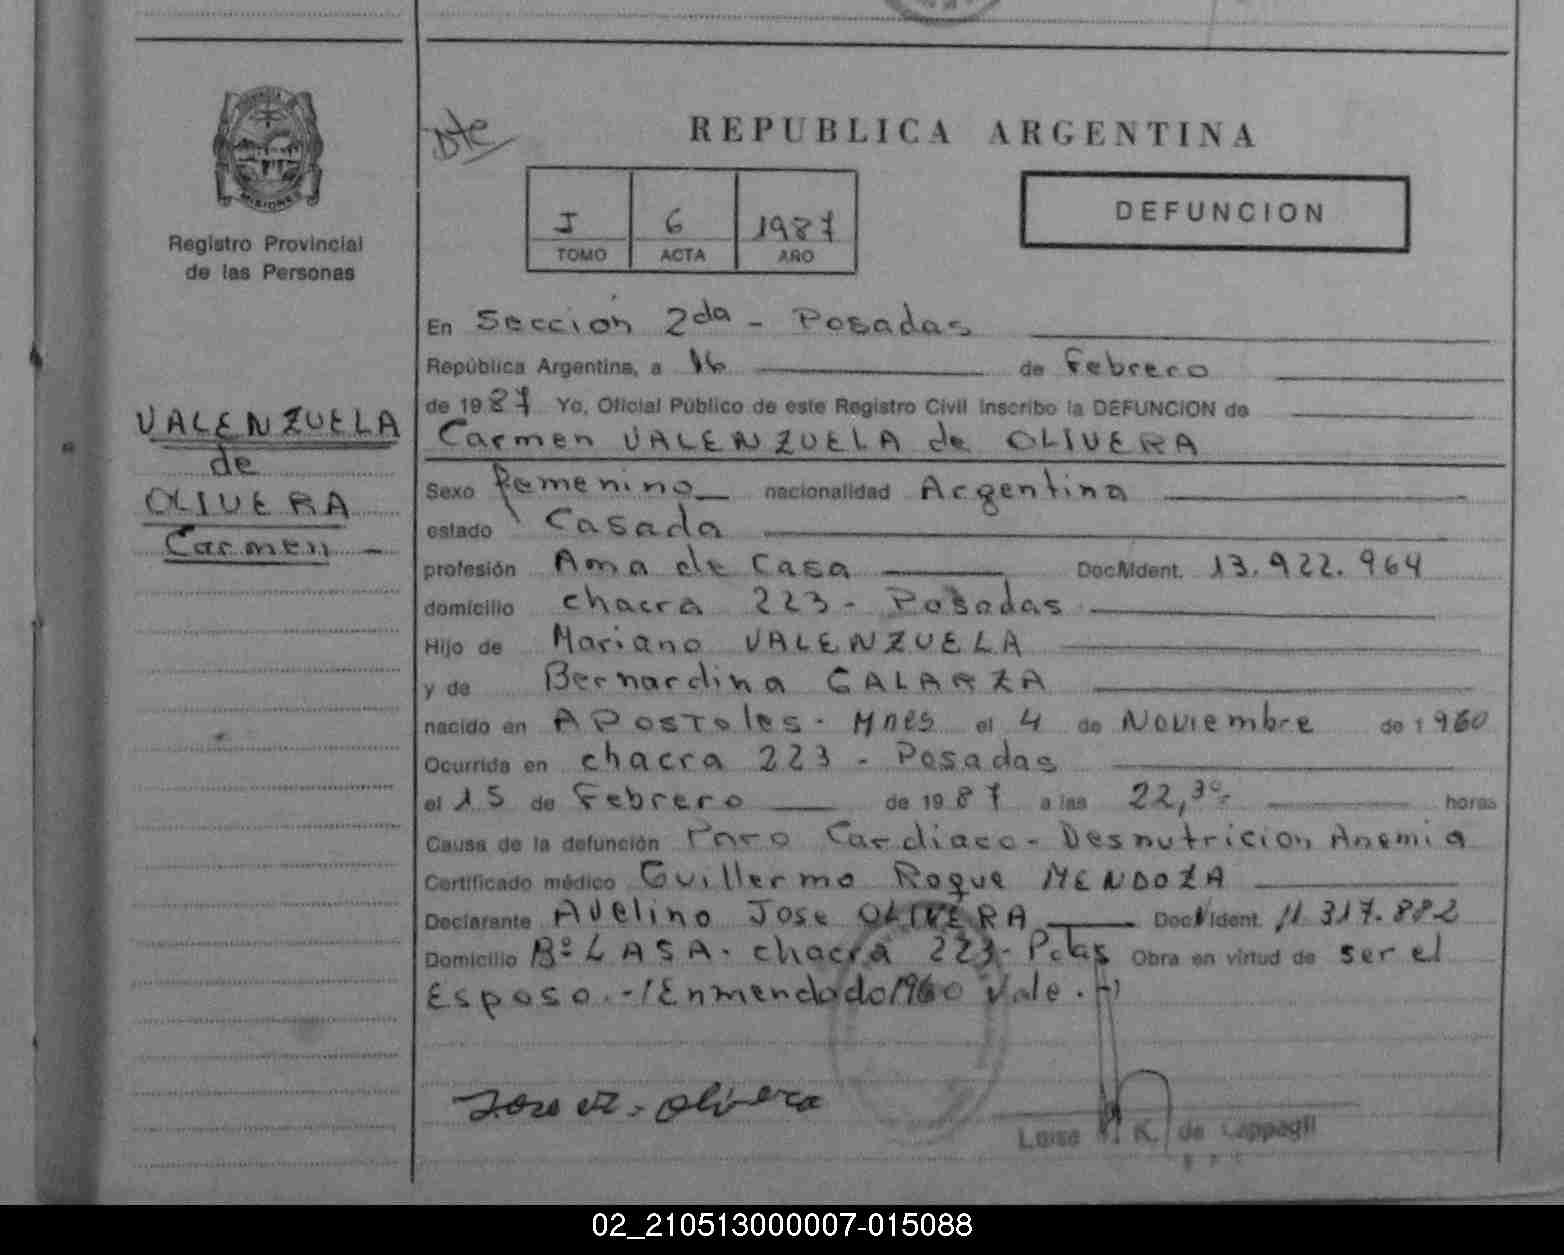 Dte
REPUBLICA ARGENTINA
MISIONES
Registro Provincial
de las Personas
I 6 1987
TOMO ACTA AÑO
DEFUNCION
VALENZUELA
de
OLIVERA
Carmen -
En Sección 2da - Posadas
República Argentina, a 16 de Febrero
de 1987 Yo, Oficial Público de este Registro Civil inscribo la DEFUNCION de
Carmen VALENZUELA de OLIVERA
Sexo femenino nacionalidad Argentina
estado Casada
profesión Ama de Casa Doc. Ident. 13.922.964
domicilio chacra 223 - Posadas
Hijo de Mariano VALENZUELA
y de Bernardina GALARZA
nacido en APostoles - Mnes el 4 de Noviembre de 1960
Ocurrida en chacra 223 - Posadas
el 15 de Febrero de 1987 a las 22,30 horas
Causa de la defunción Paro Cardiaco - Desnutricion Anemia
Certificado médico Guillermo Roque MENDOZA
Declarante Avelino Jose OLIVERA Doc. Ident. 11.317.882
Domicilio Bº LASA - chacra 223 - Pdas Obra en virtud de ser el
Esposo.-/Enmendado 1960 Vale.-
Jose Olivera
K. de Cappagli
02_210513000007-015088